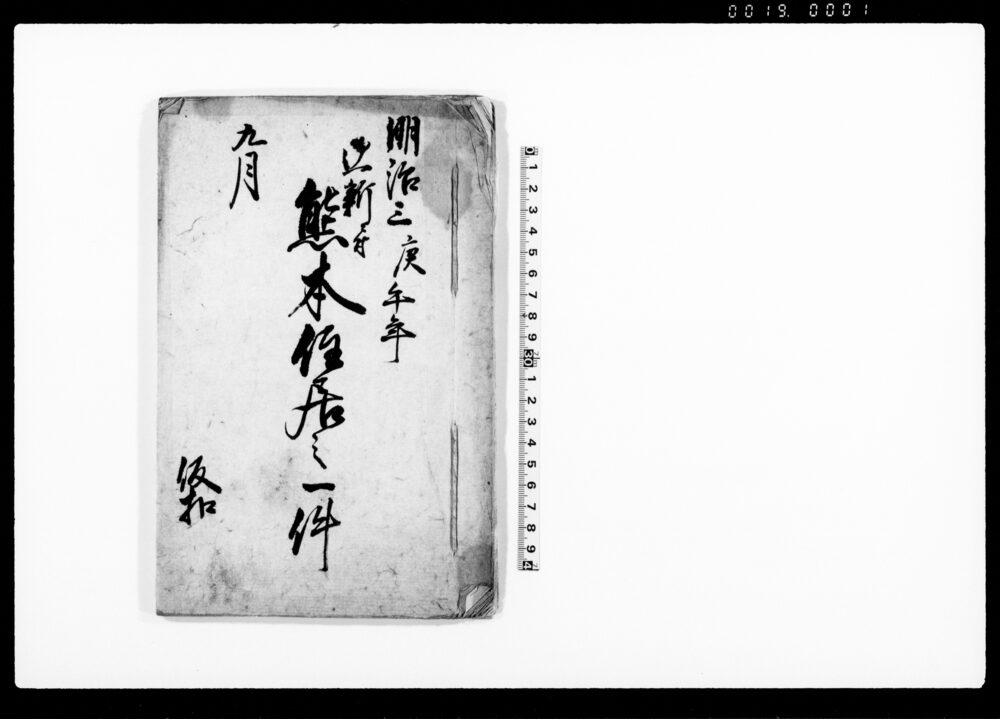 0019. 0001
明治三庚午年
熊本住居之一件
九月
仮扣
0 1 2 3 4 5 6 7 8 9 30 1 2 3 4 5 6 7 8 9 4